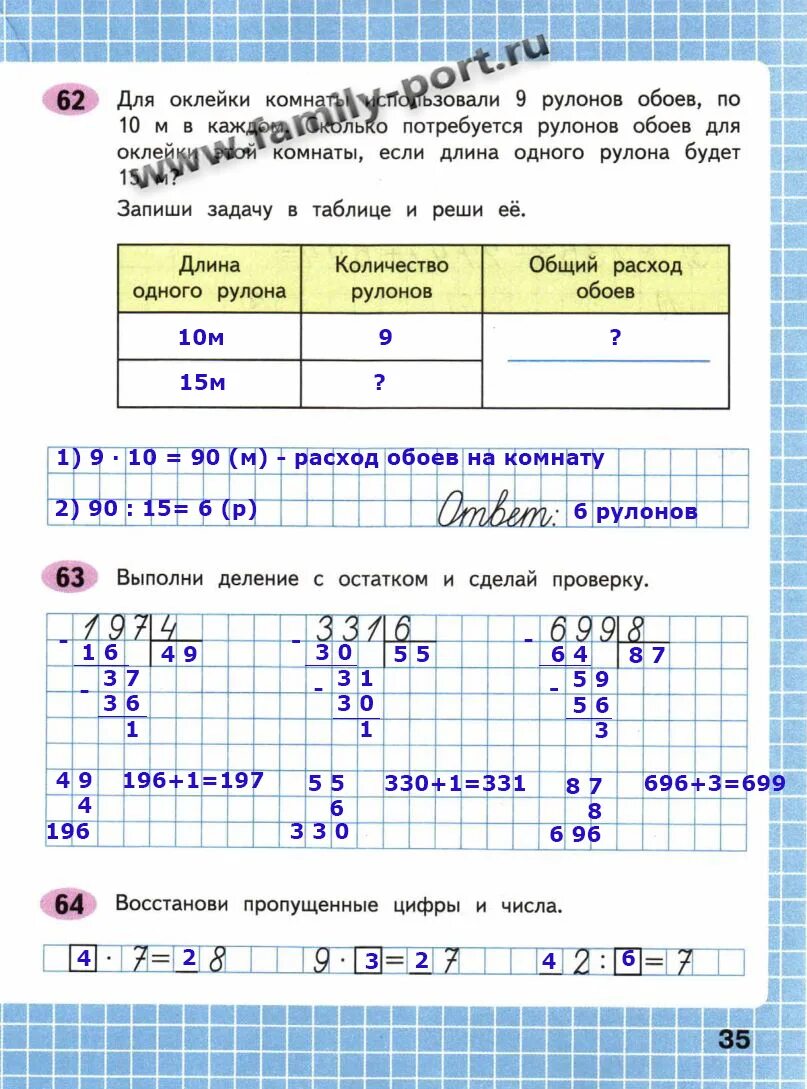 www.family-port.ru
62
Для оклейки комнаты использовали 9 рулонов обоев, по
10 м в каждом. Сколько потребуется рулонов обоев для
оклейки этой комнаты, если длина одного рулона будет
15 м?
Запиши задачу в таблице и реши её.
Длина одного рулона Количество рулонов Общий расход обоев
10м 9 ?
15м ?
1) 9 · 10 = 90 (м) - расход обоев на комнату
2) 90 : 15= 6 (р) Ответ: 6 рулонов
63 Выполни деление с остатком и сделай проверку.
- 197 4 - 331 6 - 699 8
16 49 30 55 64 87
- 37 - 31 - 59
36 30 56
1 1 3
49 196+1=197 55 330+1=331 87 696+3=699
4 6 8
196 330 696
64 Восстанови пропущенные цифры и числа.
4 · 7= 2 8 9 · 3 = 2 7 4 2 : 6 = 7
35